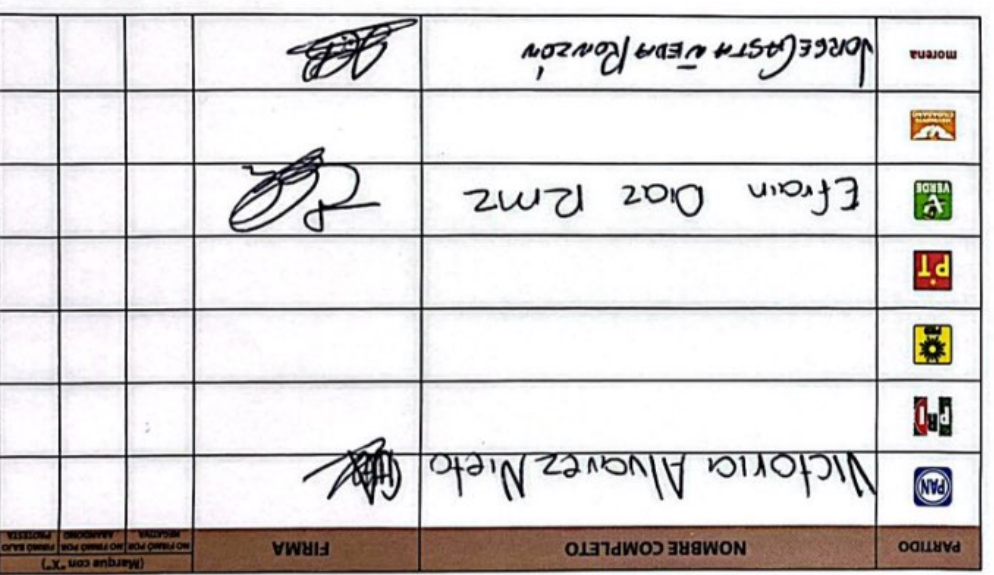 PARTIDO NOMBRE COMPLETO FIRMA (Marque con "X")
NO FIRMÓ POR NEGATIVA NO FIRMÓ POR ABANDONO FIRMÓ BAJO PROTESTA
PAN Victoria Alvarez Nieto
PRI
PRD
PT
VERDE Efrain Diaz Rmz
MOVIMIENTO CIUDADANO
morena JORGE CASTAÑEDA RONZÓN